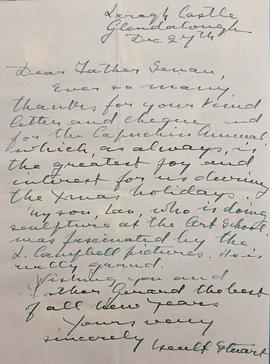 Laragh Castle
Glendalough
Dec 27th
Dear Father Senan,
Ever so many
thanks for your kind
letter and cheque and
for the Capuchin Annual
which, as always, is
the greatest joy and
interest for us during
the Xmas holidays.
My son, Ian, who is doing
sculpture at the Art School
was fascinated by the
L. Campbell pictures. He is
really grand.
Wishing you and
Father Gerard the best
of all New Years
Yours very
sincerely Iseult Stuart